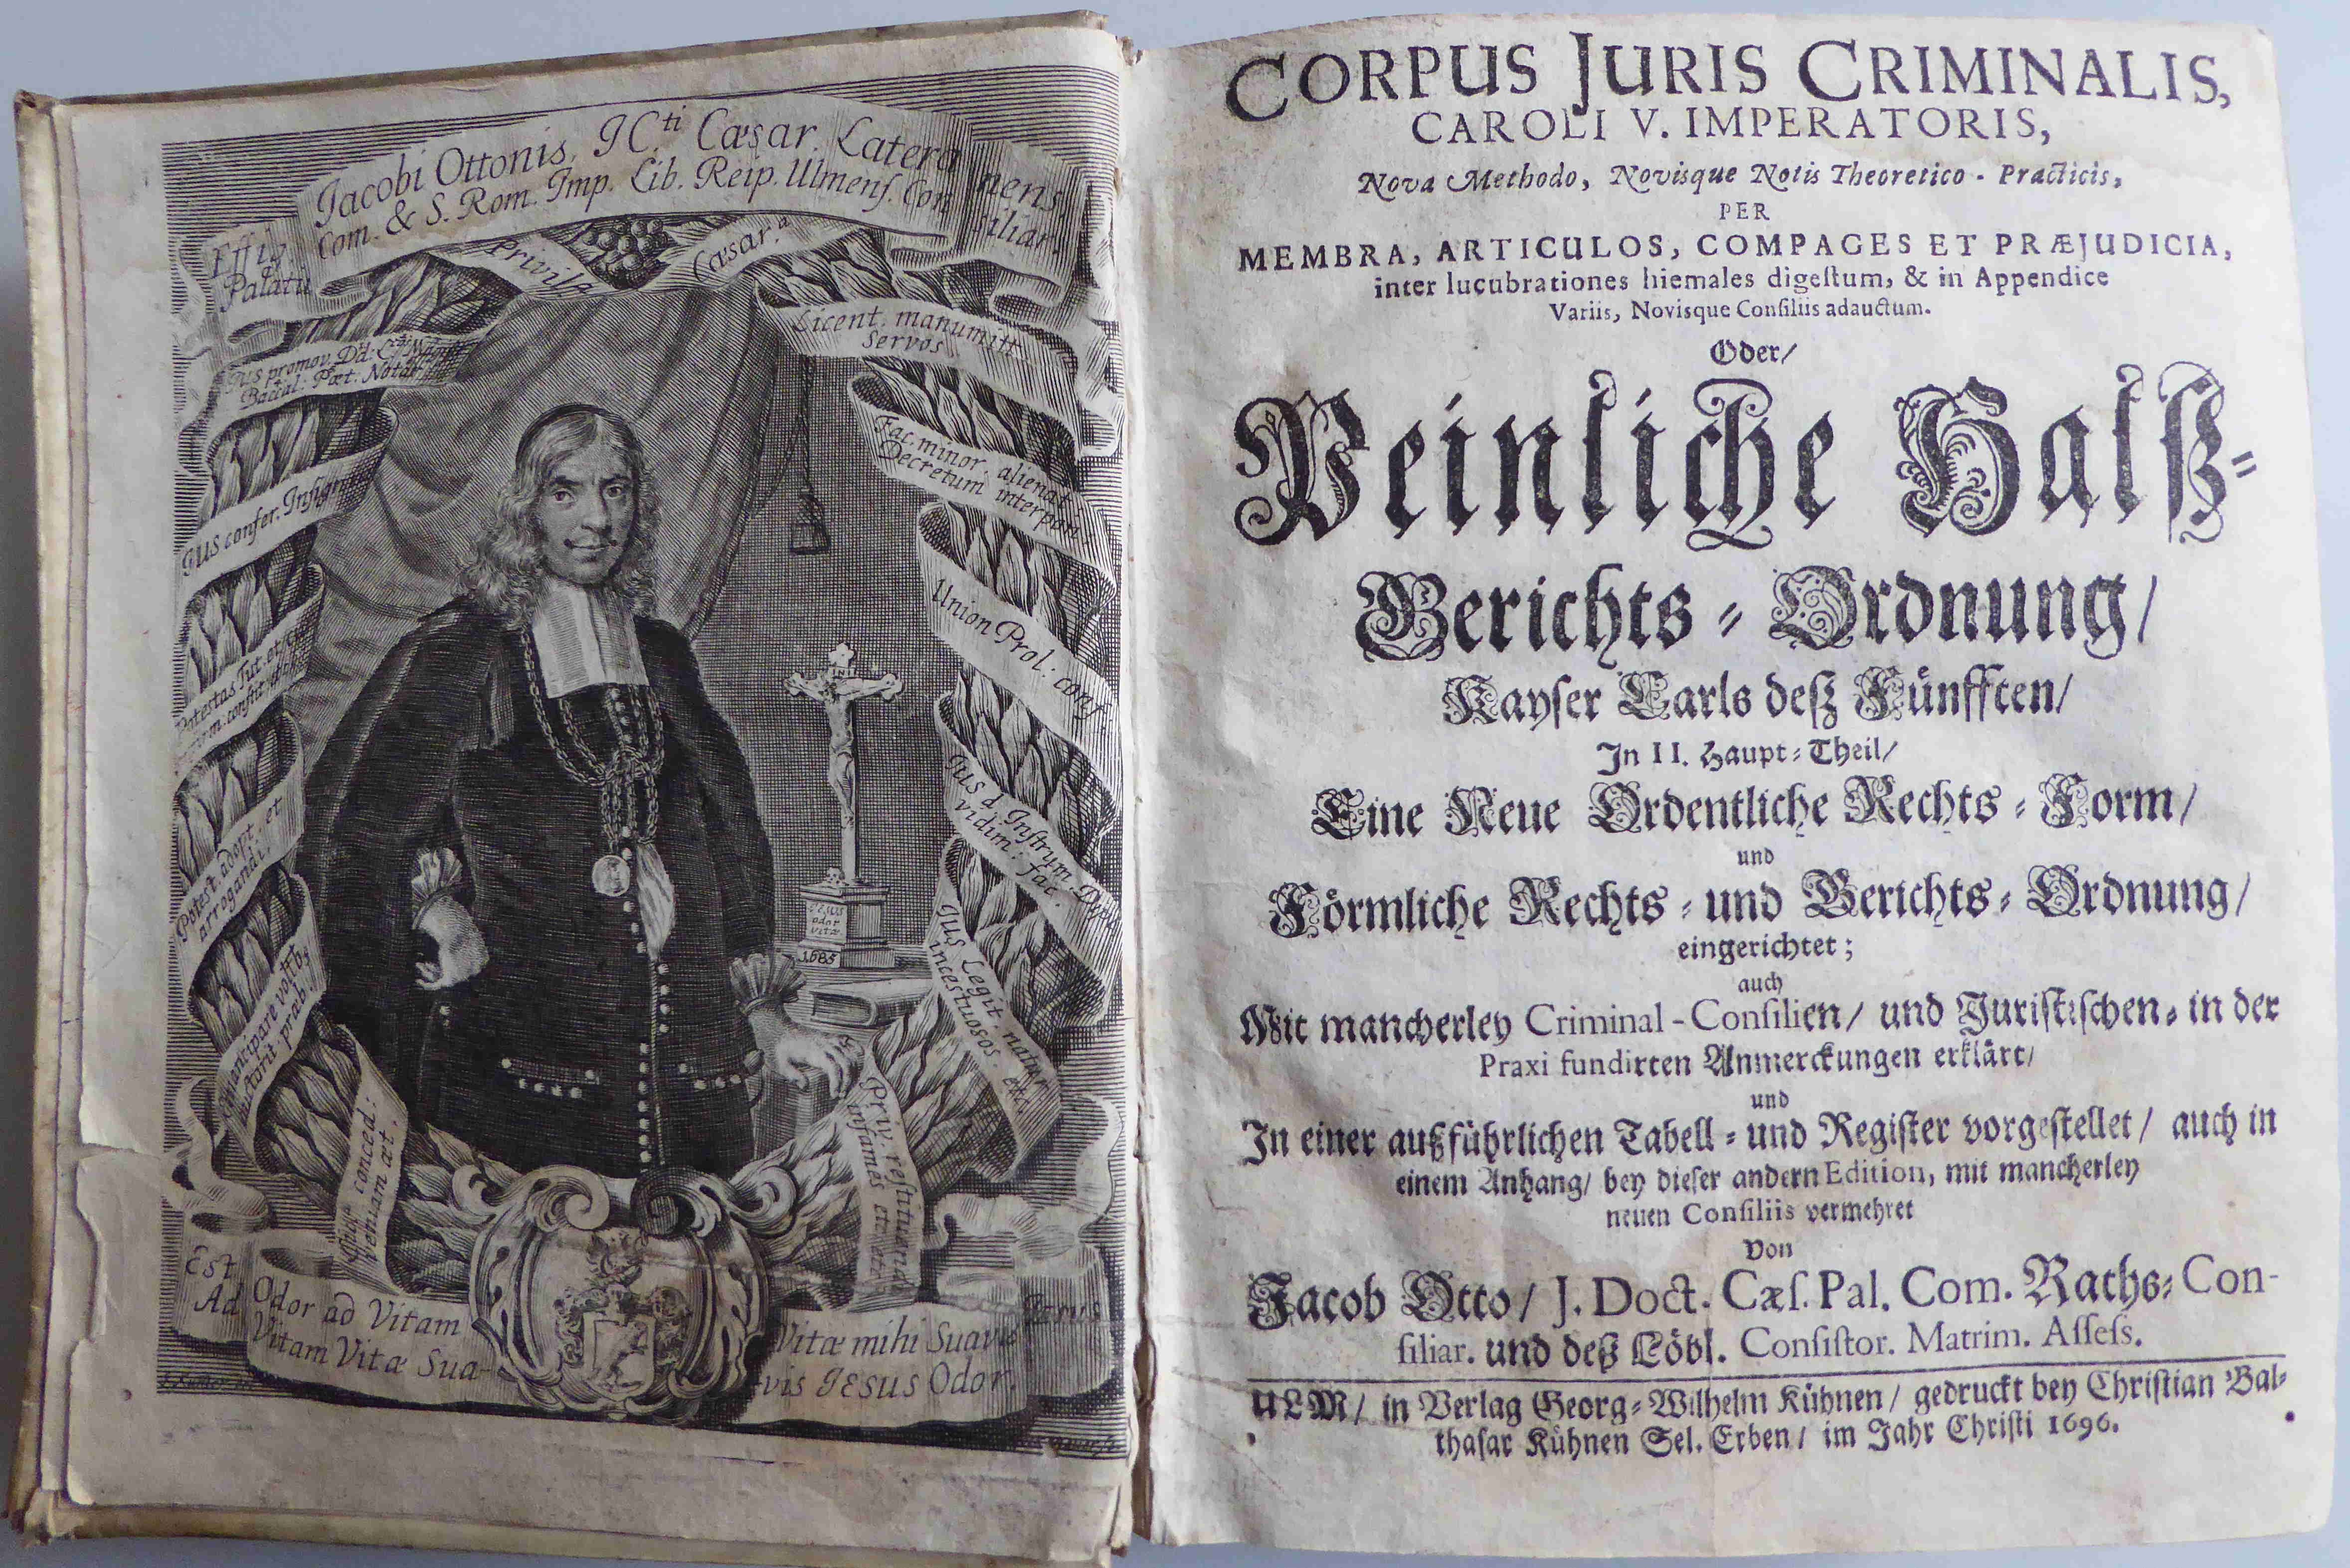 Effig. Jacobi Ottonis, JC.ti Cæsar. Lateranens.
Palatii Com. & S. Rom. Imp. Lib. Reip. Ulmens. Consiliar.
Privila Cæsar.a
Jus promov. Dd:
Baccal: Pœt. Notar.
Jus confer. Insign
Potestas Tut. et
Potest. adopt. et
arrogandi.
Emancipare
concéd:
veniam æt.
Licent. manumitt.
Servos
Fac. minor. alienat.
Decretum interpon
Union Prol. conf.
Jus d Instrum.
vidim: fac.
Jus Legit. natur
incestuosos. etc
Priv. restituend
infames etc. etc.
INRI
JESUS
odor
vitæ
1685
Est Odor ad Vitam Vitæ mihi Suavis Jesus
Ad Vitam Vitæ Sua- vis JESUS Odor.
CORPUS JURIS CRIMINALIS,
CAROLI V. IMPERATORIS,
Nova Methodo, Novisque Notis Theoretico - Practicis,
PER
MEMBRA, ARTICULOS, COMPAGES ET PRÆJUDICIA,
inter lucubrationes hiemales digeſtum, & in Appendice
Variis, Novisque Conſiliis adauctum.
Oder/
Peinliche Halß-
Gerichts-Ordnung/
Kayſer Carls deß Fünfften/
In II. Haupt-Theil/
Eine Neue Ordentliche Rechts-Form/
und
Förmliche Rechts- und Gerichts-Ordnung/
eingerichtet;
auch
Mit mancherley Criminal-Conſilien/ und Juriſtiſchen- in der
Praxi fundirten Anmerckungen erklärt/
und
In einer außführlichen Tabell- und Regiſter vorgeſtellet/ auch in
einem Anhang/ bey dieſer andern Edition, mit mancherley
neuen Conſiliis vermehret
Von
Jacob Otto/ J. Doct. Cæſ. Pal. Com. Raths-Con-
ſiliar. und deß Löbl. Conſiſtor. Matrim. Aſſeſs.
ULM/ in Verlag Georg-Wilhelm Kühnen/ gedruckt bey Chriſtian Bal-
thaſar Kühnen Sel. Erben/ im Jahr Chriſti 1696.